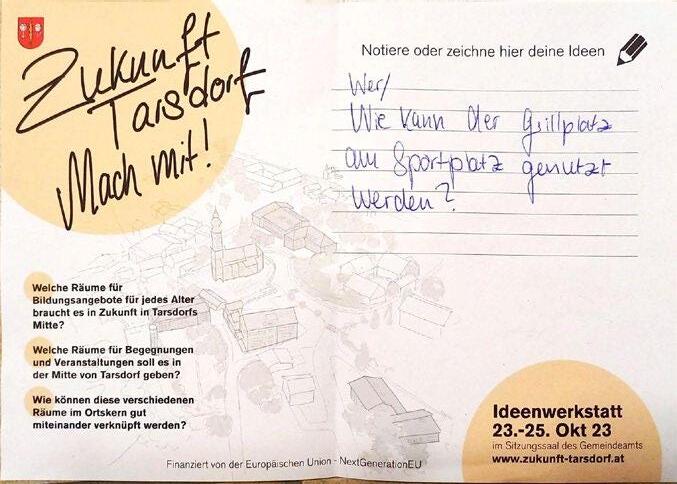 Zukunft
Tarsdorf
Mach mit!
Notiere oder zeichne hier deine Ideen
Wer/
Wie kann der Grillplatz
am Sportplatz genutzt
werden?
Welche Räume für
Bildungsangebote für jedes Alter
braucht es in Zukunft in Tarsdorfs
Mitte?
Welche Räume für Begegnungen
und Veranstaltungen soll es in
der Mitte von Tarsdorf geben?
Wie können diese verschiedenen
Räume im Ortskern gut
miteinander verknüpft werden?
Ideenwerkstatt
23.-25. Okt 23
im Sitzungssaal des Gemeindeamts
www.zukunft-tarsdorf.at
Finanziert von der Europäischen Union - NextGenerationEU